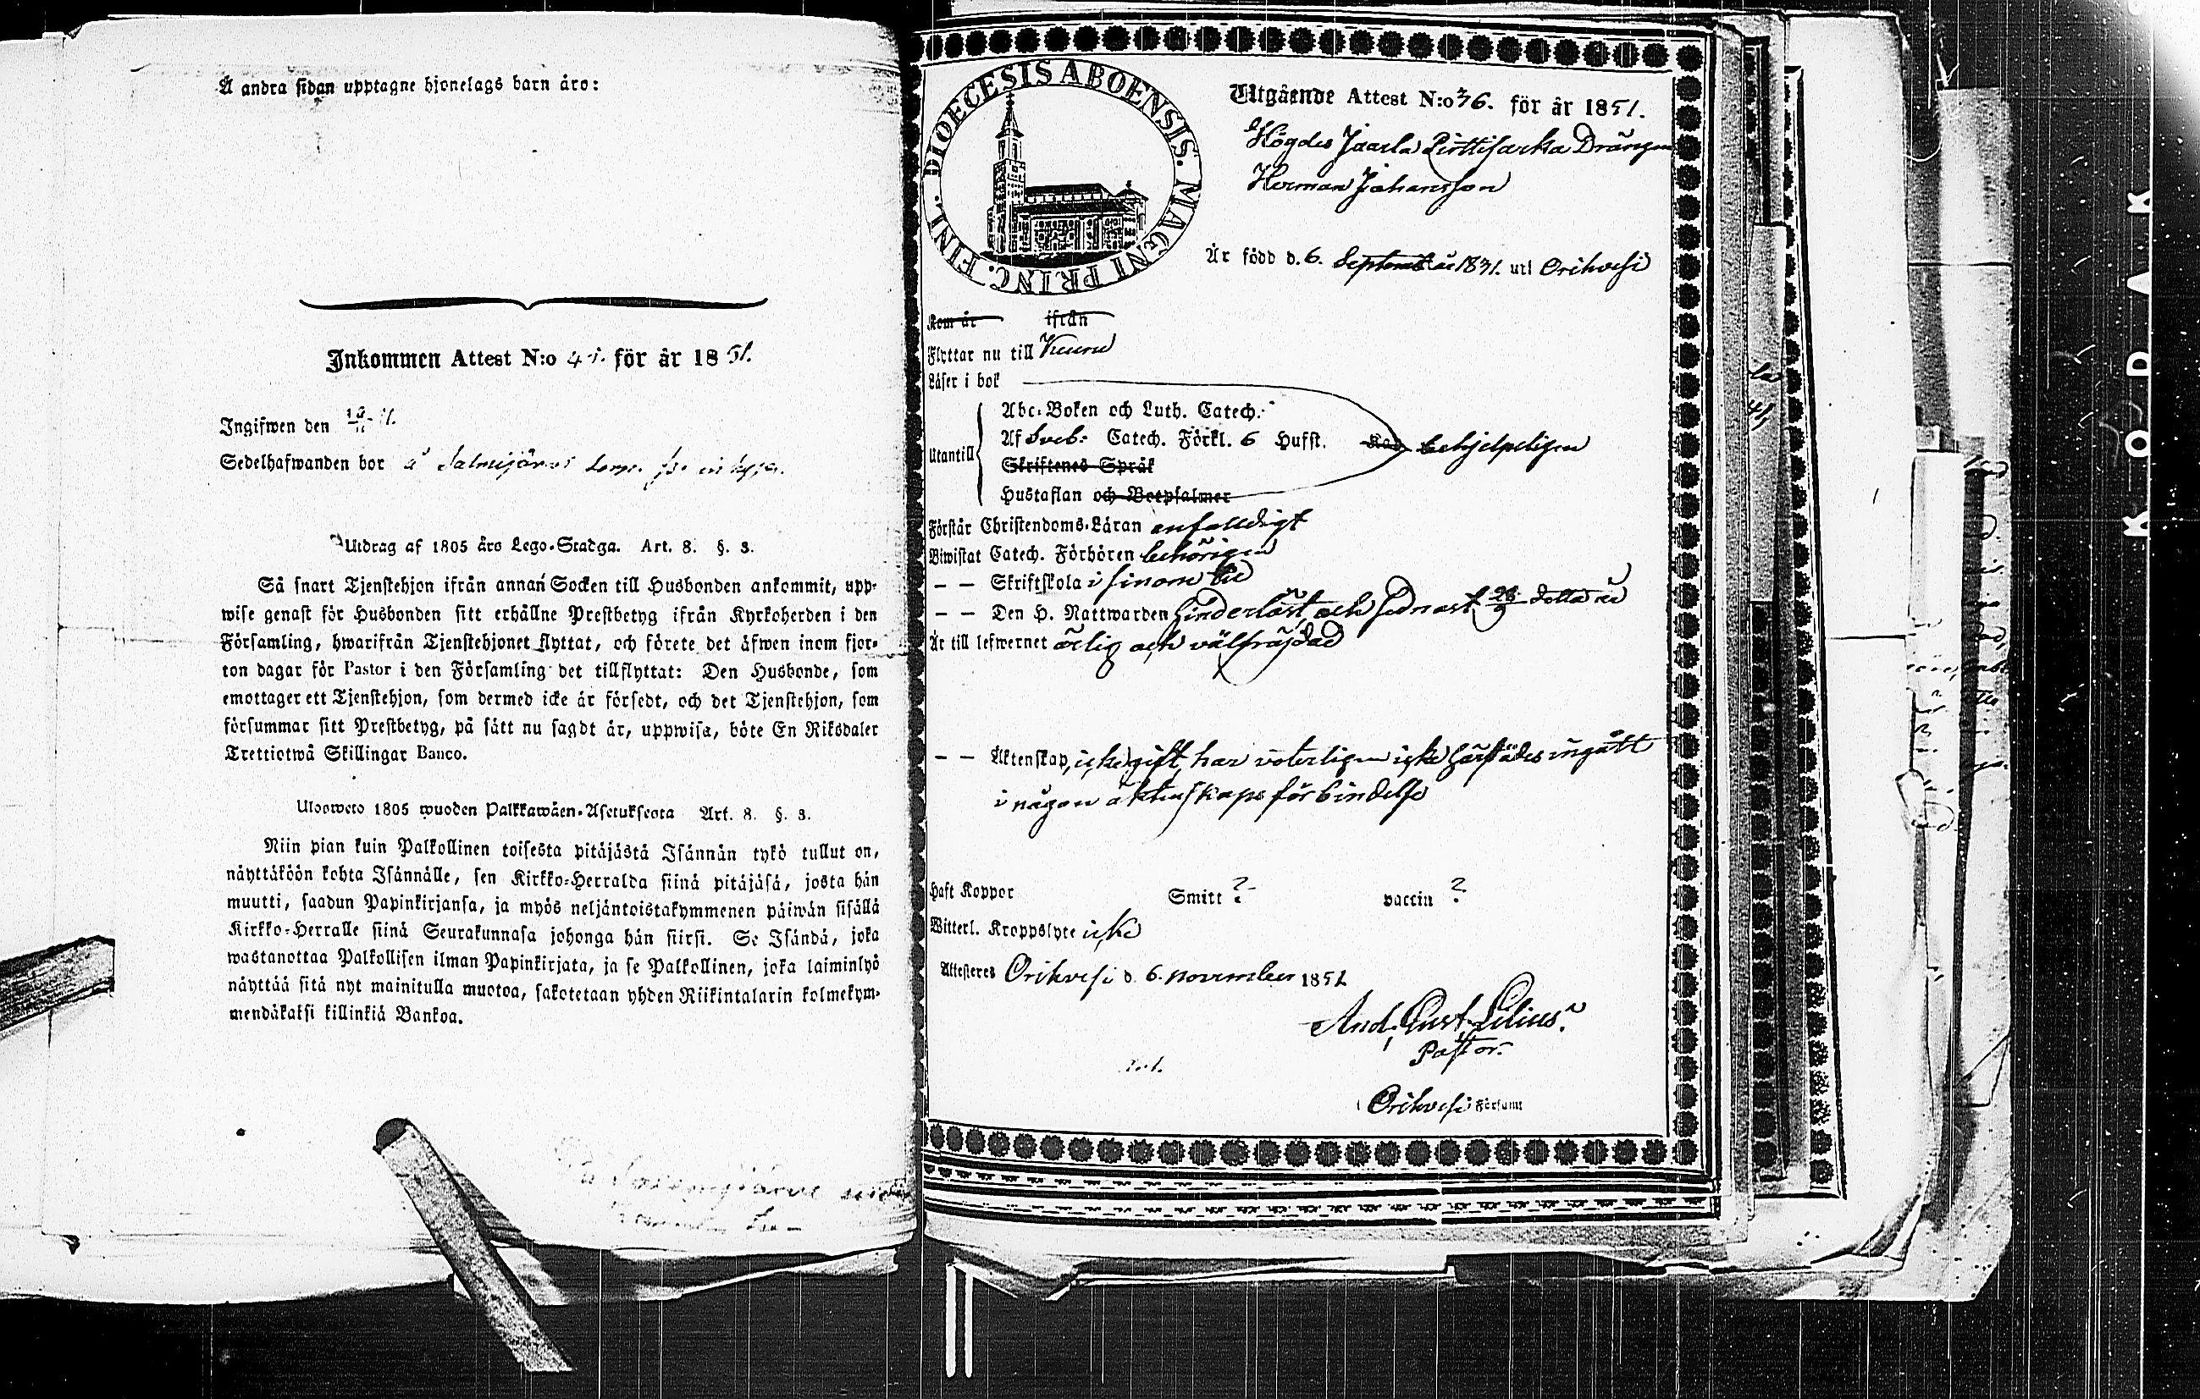 Å andra sidan upptagne hjonelags barn äro:
Inkommen Attest N:o för år 1851.
Ingifwen den
Sedelhafwanden bor å Salmijärvi
Utdrag af 1805 års Lego-Stadga. Art. 8. §. 3.
Så snart Tjenstehjon ifrån annan Socken till Husbonden ankommit, upp-
wise genast för Husbonden sitt erhållne Prestbetyg ifrån Kyrkoherden i den
Församling, hwarifrån Tjenstehjonet flyttat, och förete det äfwen inom fjor-
ton dagar för Pastor i den Församling det tillflyttat: Den Husbonde, som
emottager ett Tjenstehjon, som dermed icke är försedt, och det Tjenstehjon, som
försummar sitt Prestbetyg, på sätt nu sagdt är, uppwisa, böte En Riksdaler
Trettiotwå Skillingar Banco.
Ulosweto 1805 wuoden Palkkawäen-Asetuksesta Art. 8. §. 3.
Niin pian kuin Palkollinen toisesta pitäjästä Isännän tykö tullut on,
näyttäköön kohta Isännälle, sen Kirkko-Herralda siinä pitäjäsä, josta hän
muutti, saadun Papinkirjansa, ja myös neljäntoistakymmenen päiwän sisällä
Kirkko-Herralle siinä Seurakunnasa johonga hän siirsi. Se Isändä, joka
wastanottaa Palkollisen ilman Papinkirjata, ja se Palkollinen, joka laiminlyö
näyttää sitä nyt mainitulla muotoa, sakotetaan yhden Riikintalarin kolmekym-
mendäkaksi killinkiä Bankoa.
DIOECESIS ABOENSIS. MAGNI PRINC. FINL.
Utgående Attest N:o 36. för år 1851.
Högdes Jaarla Pirttisarka Drängen
Herman Johansson
Är född d. 6. Septemb år 1831. uti Orihvesi
Kom år ifrån
Flyttar nu till Kuuru
Läser i bok
Utantill
Abc-Boken och Luth. Catech.
Af Sveb: Catech. Förkl. 6 Hufst. behjelpeligen
Skriftenes Språk
Hustaflan och Botpsalmer
Förstår Christendoms-Läran enfalldigt
Biwistat Catech. Förhören behörigen
— — Skriftskola i sinom tid
— — Den H. Nattwarden hinderlöst, och sednast 28/9 detta år
Är till lefwernet ärlig och välfräjdad
— — Äktenskap, icke gift, har veterligen icke härstädes ingått
i någon äktenskaps förbindelse
Haft Koppor Smitt ? vaccin ?
Witterl. Kroppslyte icke
Attesteres Orihvesi d. 6. november 1851
And. Gust. Lilius.
Pastor.
i Orihvesi Församl
KODAK